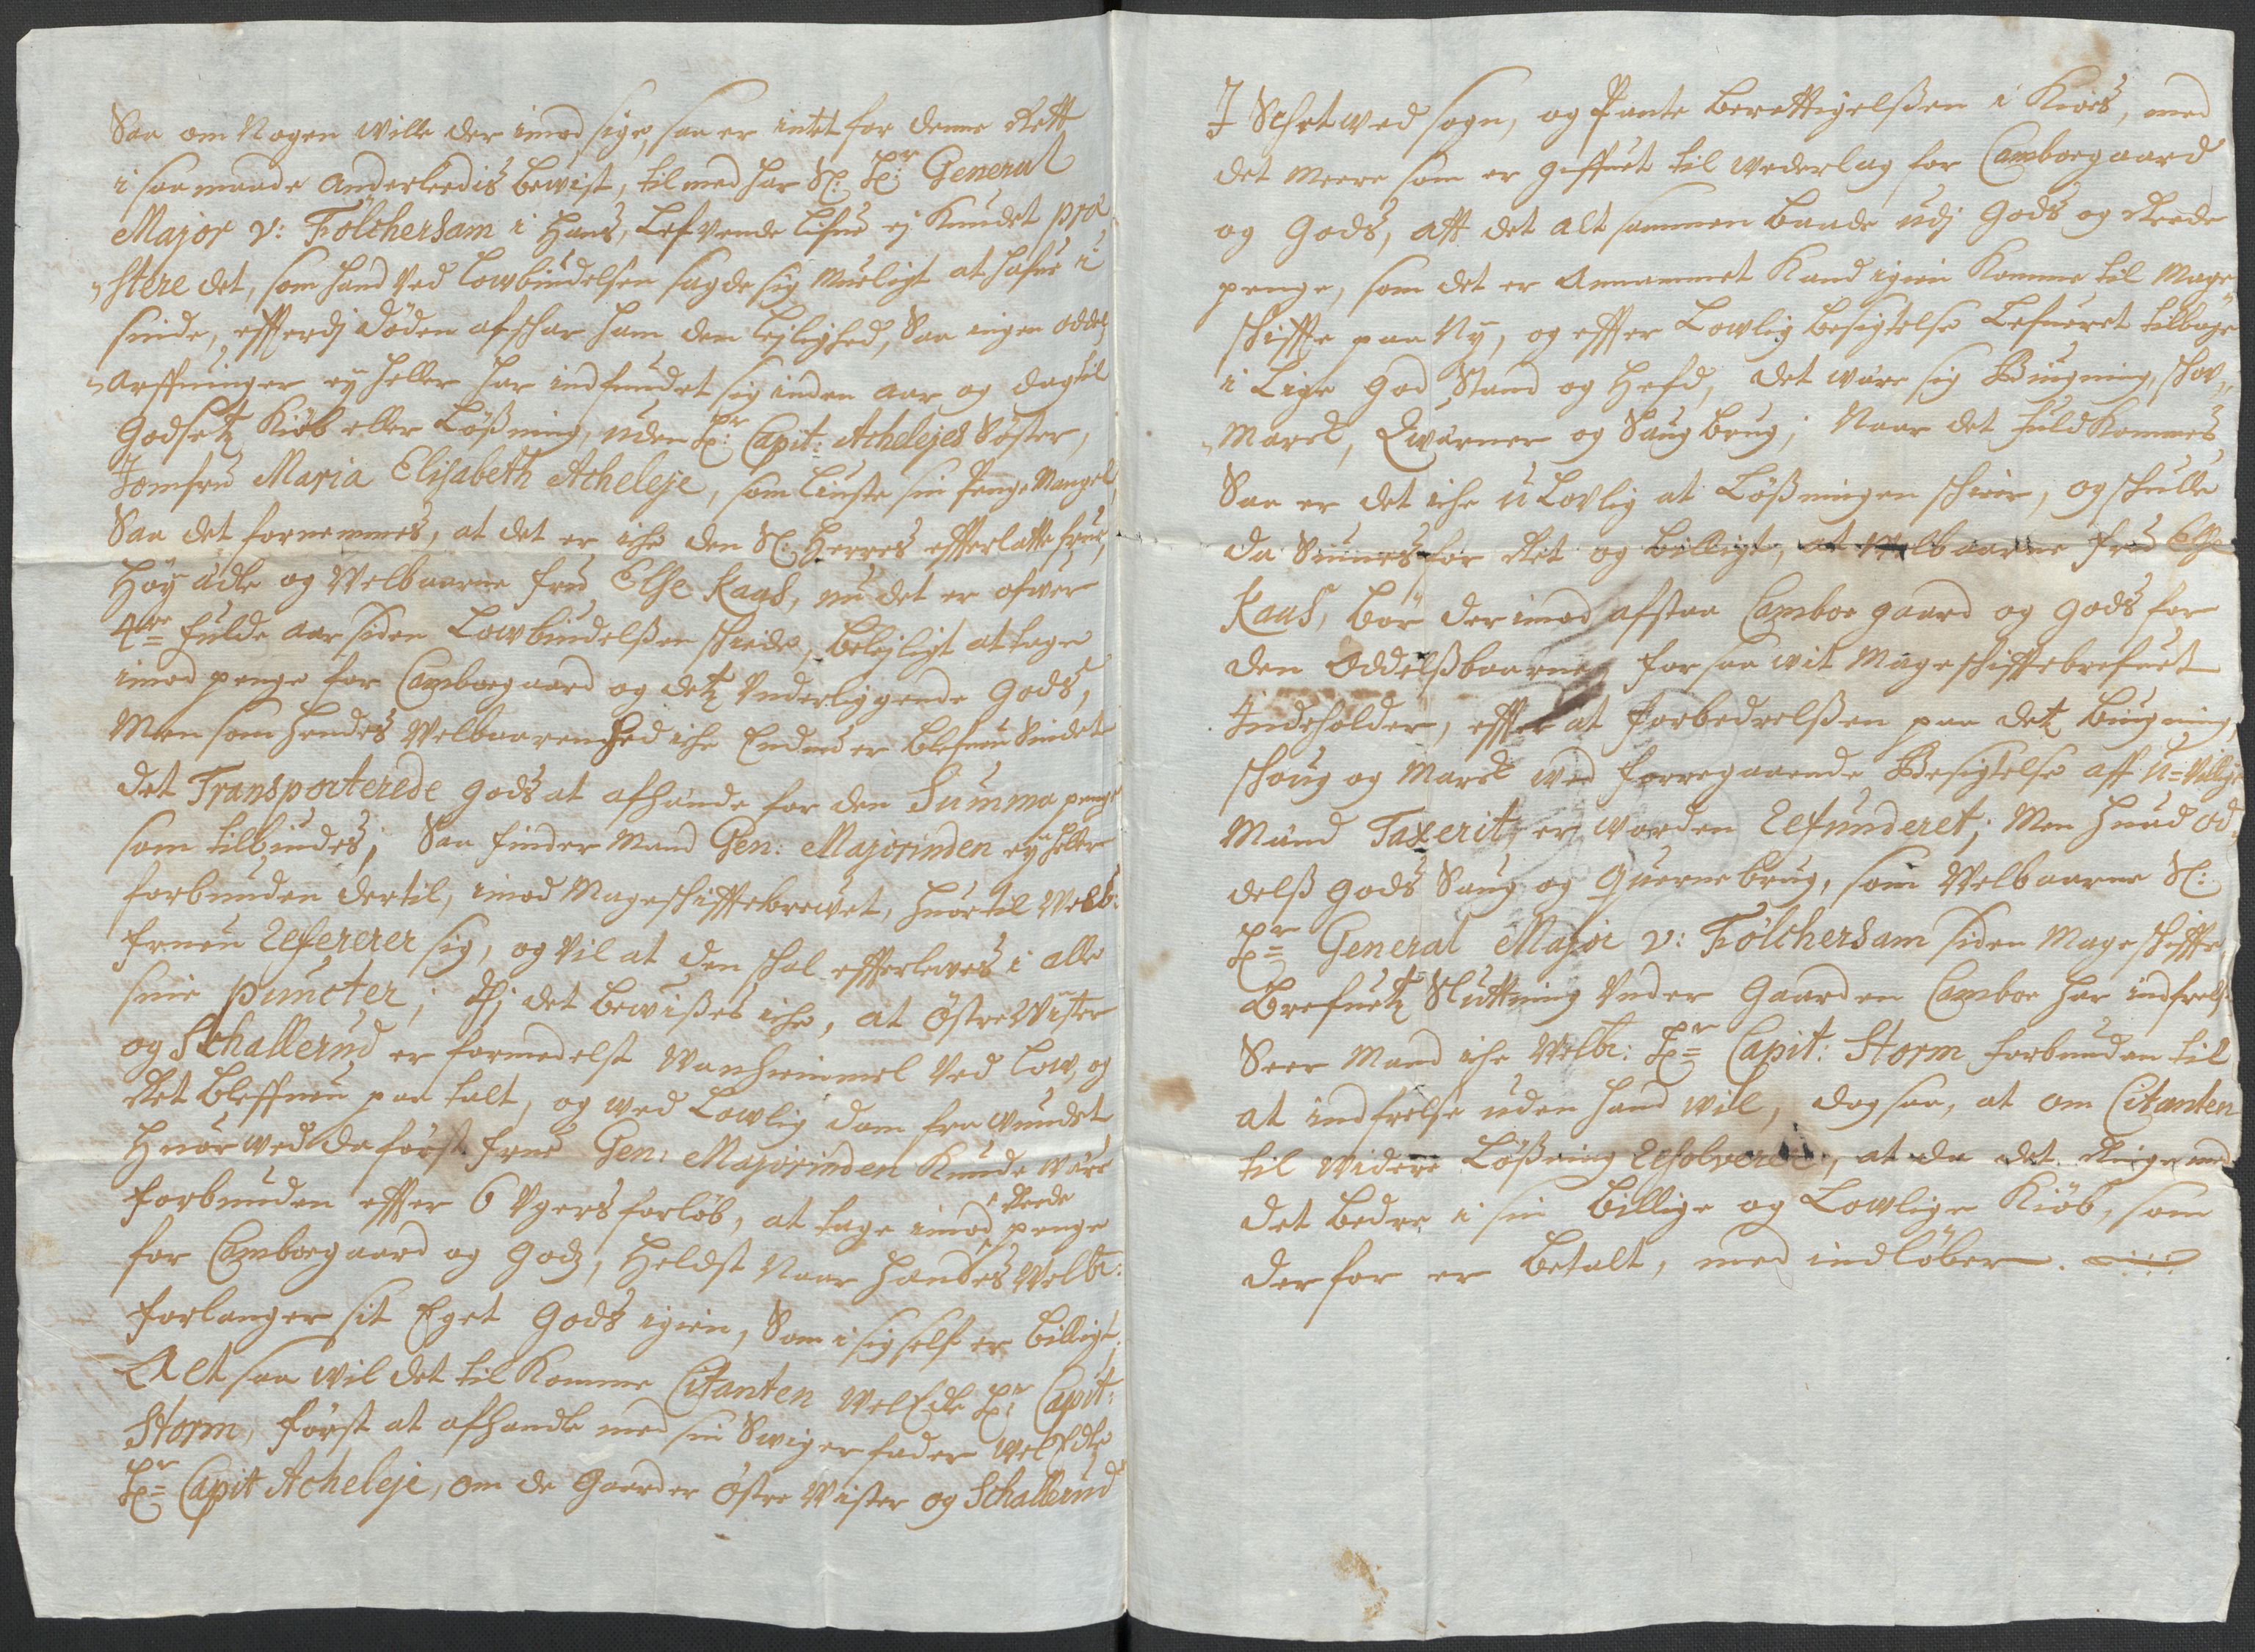 Saa om Nogen wille der imod sige, saa er intet for denne Rett
i saa maade Anderledis bewist, til med har Sl: Hr: General
Major v: Fölchersam i Hans Lefvende lifve ej Kundet præ
stere det, som hand Ved Lowbiudelsen sagde sig Mueligt at hafve i
sinde, efterdj döden afskar ham den lejlighed, Saa ingen oddels
arffvinger ey heller har indfundet sig inden Aar og dag til
Godsetz Kiöb eller Lößning, uden Hr: Capit: Achelejes Söster,
Jomfru Maria Elisabeth Acheleje, som liuste sin Penge Mangel,
Saa det fornemmes, at det er iche den Sl: Herres efterlatte frue,
Höy ædle og Welbaarne frue Else Kaas, nu det er ofwer
4re fulde Aar siden Lowbiudelßen skiede, belejligt at tage
imod penge for Camboegaard og detz Underliggende Gods,
Men som hendes Welbaarenhed iche Endnu er blefven Sindet
det Transporterede gods at afhænde for den Summa penge
som tilbiudes; Saa finder Mand Gen: Majorinden ey heller
forbunden dertil, imod Mageskifftebrewet, huortil Welb:
fruen Refererer sig, og vil at den skal efterlewes i alle
sine puncter; thj det bewißes iche, at östre Wister
og Schallerud er formedelst Wanhiemmel Ved Low, og
Ret bleffven paa talt, og wed Lowlig dom fra wundet
huorwed da först frue Gen: Majorinden Kunde wære
forbunden efter 6 Ugers forlöb, at tage imod Reede penge
for Camboegaard og Gods, Heldst Naar Handes Welb:
forlanger sit Eget Gods igien, Som i sig self er billigt.
Alt saa wil det tilkomme Citanten WelEdle Hr: Capit:
Storm, först at afhandle med sin Swigerfader WelEdle
Hr= Capit Acheleje, om de Gaarder Östre Wister og Schallerud
I Schetwed sogn, og Pante berettigelßen i Kiörs, med
det meere som er giffvet til Wederlag for Camboegaard
og Gods, att det alt sammen baade udj Gods og Reede
penge, som det er Annammet Kand igien Komme til Mage
skiffte paa Ny, og effter Lowlig besigtelse Lefveret tilbage
i Lige god Stand og Hefd, det være sig Bügning, skov
Marck, Qwærner og Saug brug; Naar det fuldkommes
Saa er det iche uLovlig at Lößningen skeer, og skulle
da Siunes for Ret og billigt, at Welbaarne frue Else
Kaas, bör derimod afstaa Camboe gaard og gods for
den Oddelßbaarne, forsaawit Mageskifftebrefvet
Indeholder, effter at forbedrelßen paa detz bügning,
skoug og Marck wed foregaaende Besigtelse aff u=villige
Mænd Taxerit, er worden Refunderet; Men huad od
delß gods Saug og Quernebrug, som Welbaarne Sl:
Hr= General Major v: Fölchersam siden Mageskiffte
brefvetz Sluttning Under Gaarden Camboe har indfrelst
Seer Mand iche Welb: Hr= Capit: Storm forbunden til
at indfrelse uden hand wil, dog saa, at om Citanten
til widere Lößning Resolverer, at da det Ringe med
det bedre i sin billige og Lowlige Kiöb, som
derfor er betalt, med indlöber.